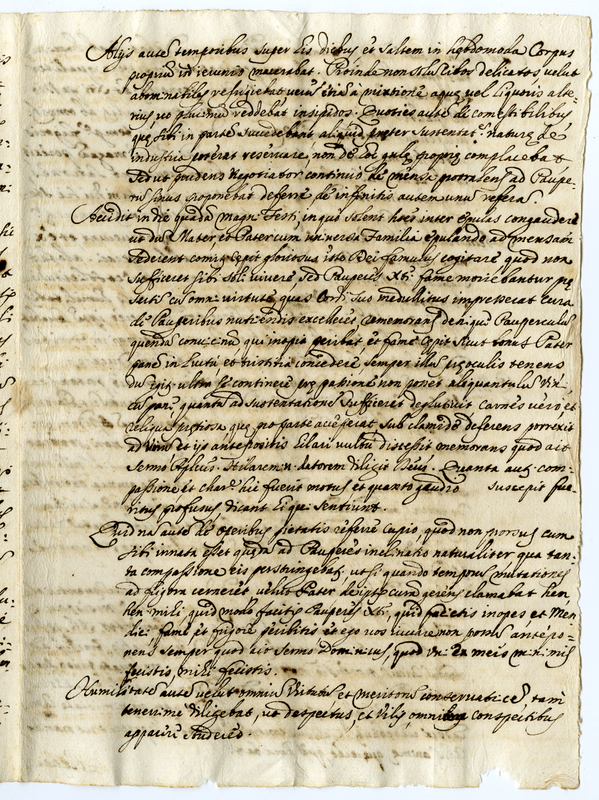 Alijs autē temporibus super his diebus et saltem in hebdomoda Corpus
proprium ieiunio macerabat. Proinde non solū cibos delicatos velut
abominabiles refugiebat verū etiā à mixtione aquę vel liquoris alte-
rius ut plurimū reddebat insipidos. Quoties autē de comestibilibus
quę sibi in partē succedebant aliquid pręter sustentat. naturę de
industria poterat reservare, non de eo gulę proprię complacebat
sed ut prudens negotiator continuo de mensa portandū ad Paupe-
rū sinus proponebat deferre de infinitis autem unū referā.
Accidit in die quadā magni Festi, in quo solent hoies inter epulas congaudere
ut dū Mater et Pater cum universa Familia epulando ad mensam
sederent comuni, cepit gloriosus iste Dei famulus cogitare quod non
sufficeret sibi soli vivere sed Pauperes Xti fame moriebantur prę
certis cū omni virtute quas cordi suo medullitus impresserat cura
de Pauperibus nutriendis excelleret, comemorans denique Pauperculū
quendā convicinū qui inopia peribat et fame cepit sicut bonus Pater
panē in luctū et tristitia comedere semper illū prę oculis tenens
dū igitur ultra se continere prę passione non posset aliquantulū
panis quantū ad sustentationē sufficeret deglutivit carnes verò et
reliqua pretiosa que pro parte acceperat sub clamide deferens porrexit
ad unū et ijs antepositis hilari vultu discessit memorans quod ait
Sermo Aplicus. Hilarem n. datorem diligit Deus. Quanta aut. com-
passione et charē hic fuerit motus et quanto gaudio suscepit fue-
ritus profusus dicant hi qui sentiunt.
Quid nā autē de operibus pietatis referre cupio, quod non prorsus cum
sibi innata esset quędā ad Pauperes inclinatio naturaliter qua tan-
ta compassione eis perstringebat, ut si quando temporis mutationes
ad frigora cerneret velut Pater decipte cum gemens clamabat heu
heu mihi quid modo facitis Pauperes Xti, quid facietis inopes et Men
dici fame et frigore peribitis et ego vos iuvare non possū antepo-
nens semper quod ait sermo Dominicus, quod uni ex meis min. mis
fecistis, mihi fecistis.
Humilitatē autē velut omniū Virtutū et meritorū conservatricē tam
tenerrime diligebat, ut despectus, et vilis omnibus conspectibus
apparere studeret.